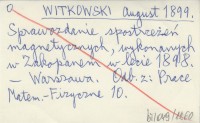 WITKOWSKI August 1899.
Sprawozdanie spostrzeżeń
magnetycznych, wykonanych
w Zakopanem w lecie 1898.
— Warszawa. Odb. z: Prace
Matem.-Fizyczne 10.